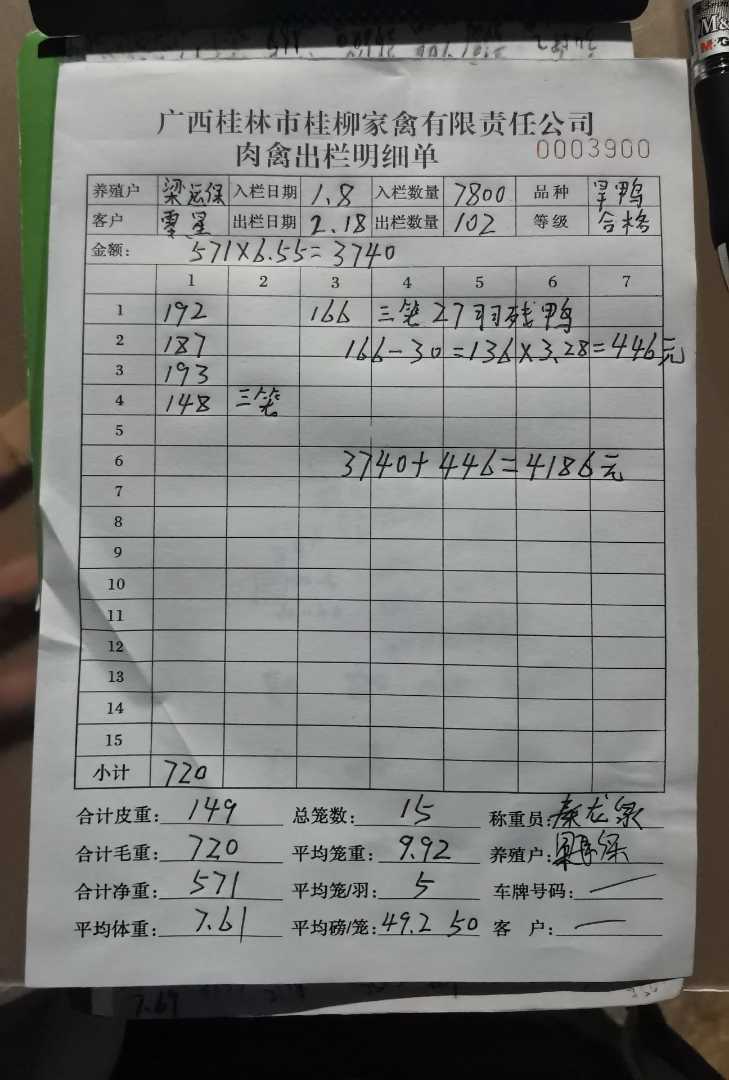 广西桂林市桂柳家禽有限责任公司
肉禽出栏明细单 0003900
养殖户 梁运保 入栏日期 1.8 入栏数量 7800 品种 旱鸭
客户 覃星 出栏日期 2.18 出栏数量 102 等级 合格
金额: 571×6.55=3740
1 2 3 4 5 6 7
1 192 166 三笼27羽残鸭
2 187 166-30=136×3.28=446元
3 193
4 148 三笼
5
6 3740+446=4186元
7
8
9
10
11
12
13
14
15
小计 720
合计皮重: 149 总笼数: 15 称重员: 秦龙泉
合计毛重: 720 平均笼重: 9.92 养殖户:
合计净重: 571 平均笼/羽: 5 车牌号码:
平均体重: 7.61 平均磅/笼: 49.2 50 客 户:
7.69